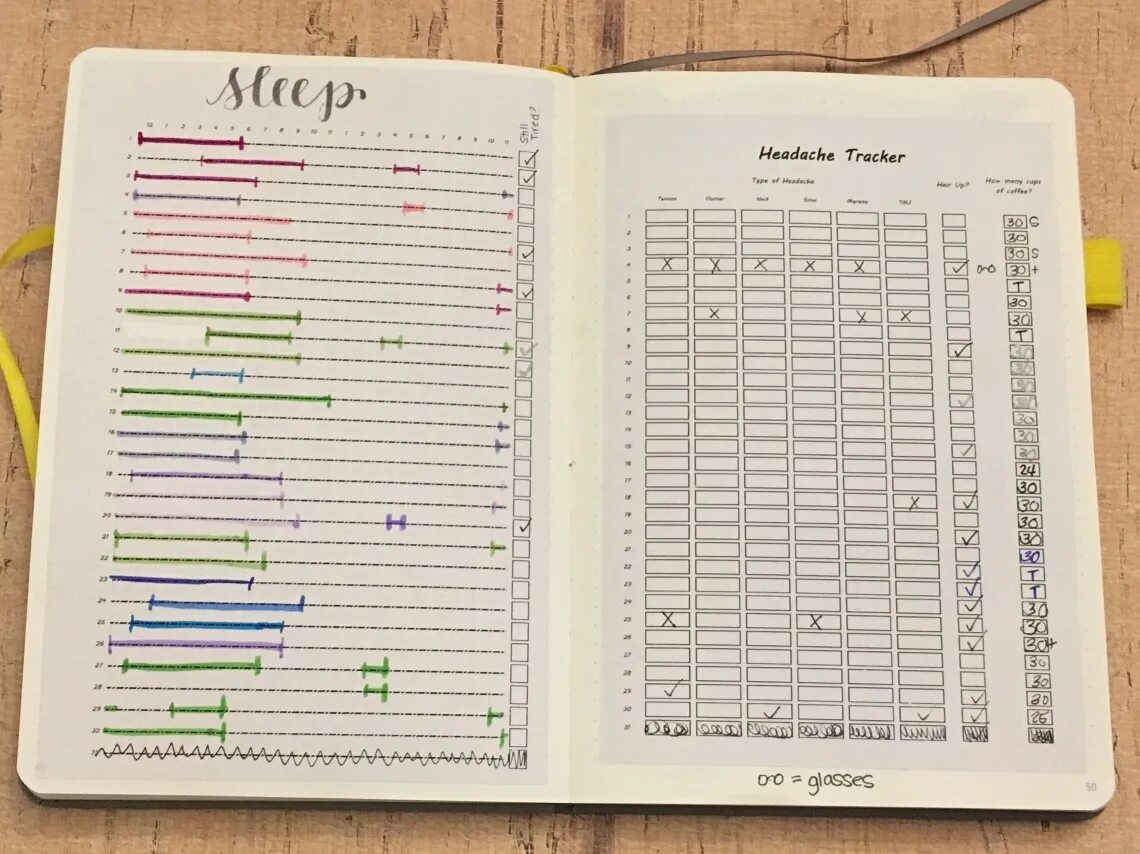 sleep
Still Tired?
12 1 2 3 4 5 6 7 8 9 10 11 1 2 3 4 5 6 7 8 9 10 11
1
2
3
4
5
6
7
8
9
10
11
12
13
14
15
16
17
18
19
20
21
22
23
24
25
26
27
28
29
30
31
Headache Tracker
Type of Headache
Hair Up?
How many cups of coffee?
Tension Cluster Neck Sinus Migraine TMJ
1 30 S
2 30
3 30 S
4 X X X X X ✓ 30 +
5 T
6 30
7 X X X 30
8 T
9 ✓ 30
10 30
11 30
12 ✓ 30
13 30
14 30
15 ✓ 30
16 24
17 30
18 X ✓ 30
19 30
20 ✓ 30
21 30
22 ✓ T
23 ✓ T
24 ✓ 30
25 X X ✓ 30
26 ✓ 30+
27 30
28 30
29 ✓ ✓ 30
30 ✓ ✓ ✓ 25
31
= glasses
50